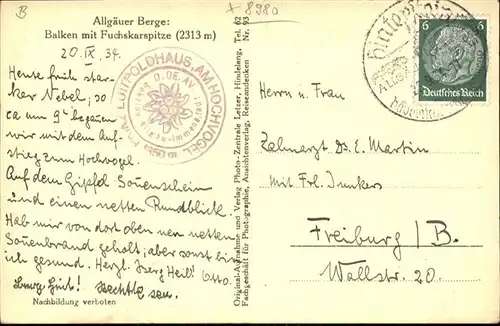 B
+ 8980
Allgäuer Berge:
Balken mit Fuchskarspitze (2313 m)
20. IX. 34.
Heute früh star-
ker Nebel; so
ca um 9h begannen
wir mit dem Auf-
stieg zum Hochvogel.
Auf dem Gipfel Sonnenschein
und einen netten Rundblick.
Hab mir von dort oben nen netten
Sonnenbrand geholt; aber sonst bin
ich gesund. Herzl. Berg Heil! Otto
Nachbildung verboten
PRINZ LUITPOLDHAUS AM HOCHVOGEL
D. OE. AV
Allgäu-Immenstadt
Original-Aufnahme und Verlag Photo-Zentrale Letzer, Hindelang, Tel. 62
Fachgeschäft für Photographie, Ansichtenverlag, Andenken Nr. 93
Hindelang
6
Deutsches Reich
Herrn u. Frau
Zahnarzt Dr. E. Martin
mit Frl. Junkers
Freiburg / B.
Wallstr. 20.